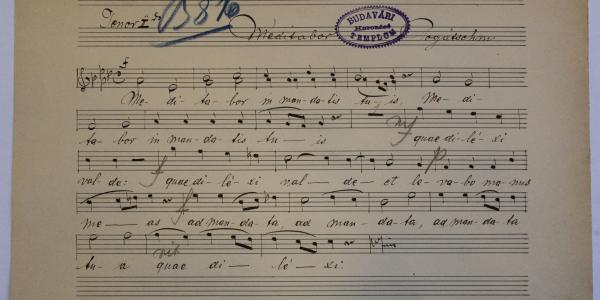 Tenor I
B 816
BUDAVÁRI
Koronázó
TEMPLOM
Meditabor
f
Me- di- ta- bor in man-da-tis tu- is, Me- di-
ta- bor in man-da- tis tu- is mf quae di-lé-xi
val-de: f quae di-lé-xi val- de et le-va-bo manus p
me- as f ad man-da-ta, ad man- da-ta, ad man-da-ta
tu- a rit quae di- lé- xi.